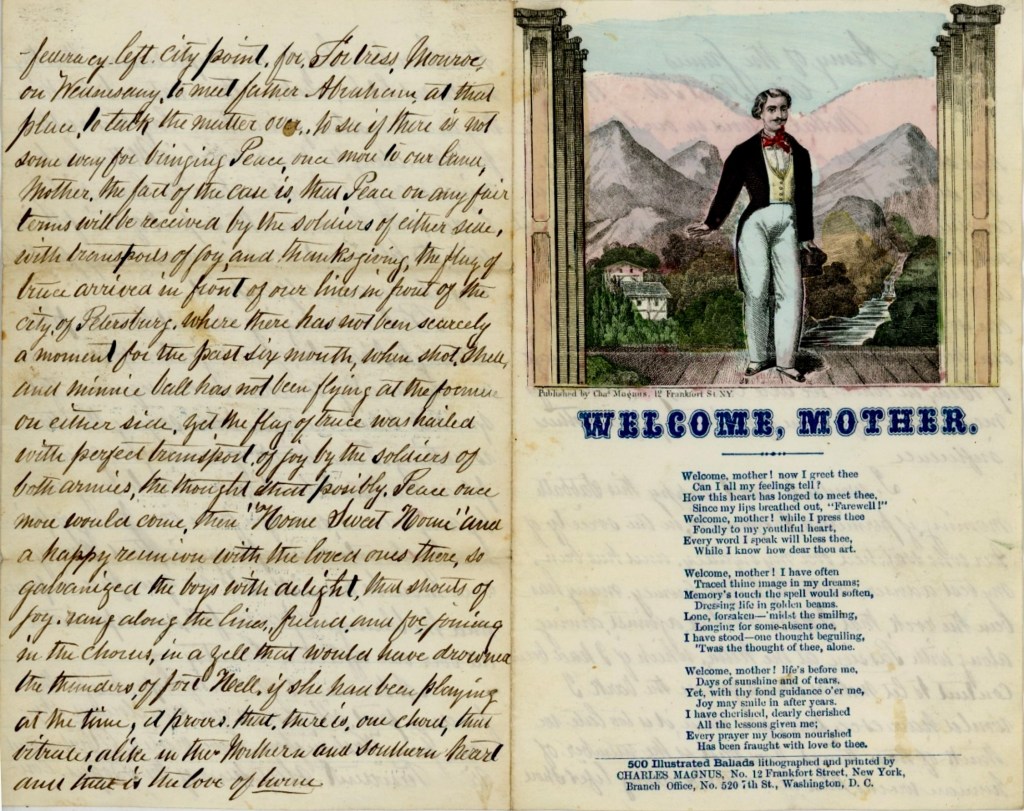 -federacy left city point, for, Fortress, Monroe,
on Wednesday, to meet father Abraham, at that
place, to talk the matter over, to see if there is not
some way for bringing Peace, once more to our land,
Mother, the fact of the case is, that Peace on any fair
terms will be received by the soldiers of either side,
with transports of joy, and thanksgiving, the flag of
truce arrived in front of our lines in front of the
city, of Petersburg, where there has not been scarcely
a moment for the past six month, when shot, shell,
and minnie ball has not been flying at the
on either side, yet the flag of truce was hailed
with perfect transport, of joy by the soldiers of
both armies, the thought that posibly, Peace once
more would come, then "Home Sweet Home" and
a happy reunion with the loved ones there, so
galvanized the boys with delight, that shouts of
joy, rang along the lines, friend, and foe, joining
in the chorus, in a yell that would have drowned
the thunders of fort Hell, if she had been playing
at the time, it proves, that, there is, one chord, that
vibrates alike in the Northern and southern Heart
and that is the love of home
Published by Chas. Magnus, 12 Frankfort St. N.Y.
WELCOME, MOTHER.
Welcome, mother! now I greet thee
Can I all my feelings tell?
How this heart has longed to meet thee,
Since my lips breathed out, "Farewell!"
Welcome, mother! while I press thee
Fondly to my youthful heart,
Every word I speak will bless thee,
While I know how dear thou art.
Welcome, mother! I have often
Traced thine image in my dreams;
Memory's touch the spell would soften,
Dressing life in golden beams.
Lone, forsaken—'midst the smiling,
Longing for some-absent one,
I have stood—one thought beguiling,
'Twas the thought of thee, alone.
Welcome, mother! life's before me,
Days of sunshine and of tears,
Yet, with thy fond guidance o'er me,
Joy may smile in after years.
I have cherished, dearly cherished
All the lessons given me;
Every prayer my bosom nourished
Has been fraught with love to thee.
500 Illustrated Ballads lithographed and printed by
CHARLES MAGNUS, No. 12 Frankfort Street, New York,
Branch Office, No. 520 7th St., Washington, D. C.